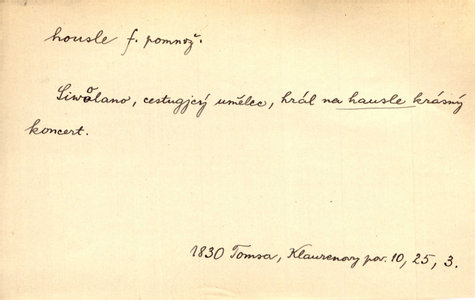 housle f. pomnož.
Siwolano, cestugjcý umělec, hrál na hausle krásný
koncert.
1830 Tomsa, Klaurenovy pov. 10, 25, 3.